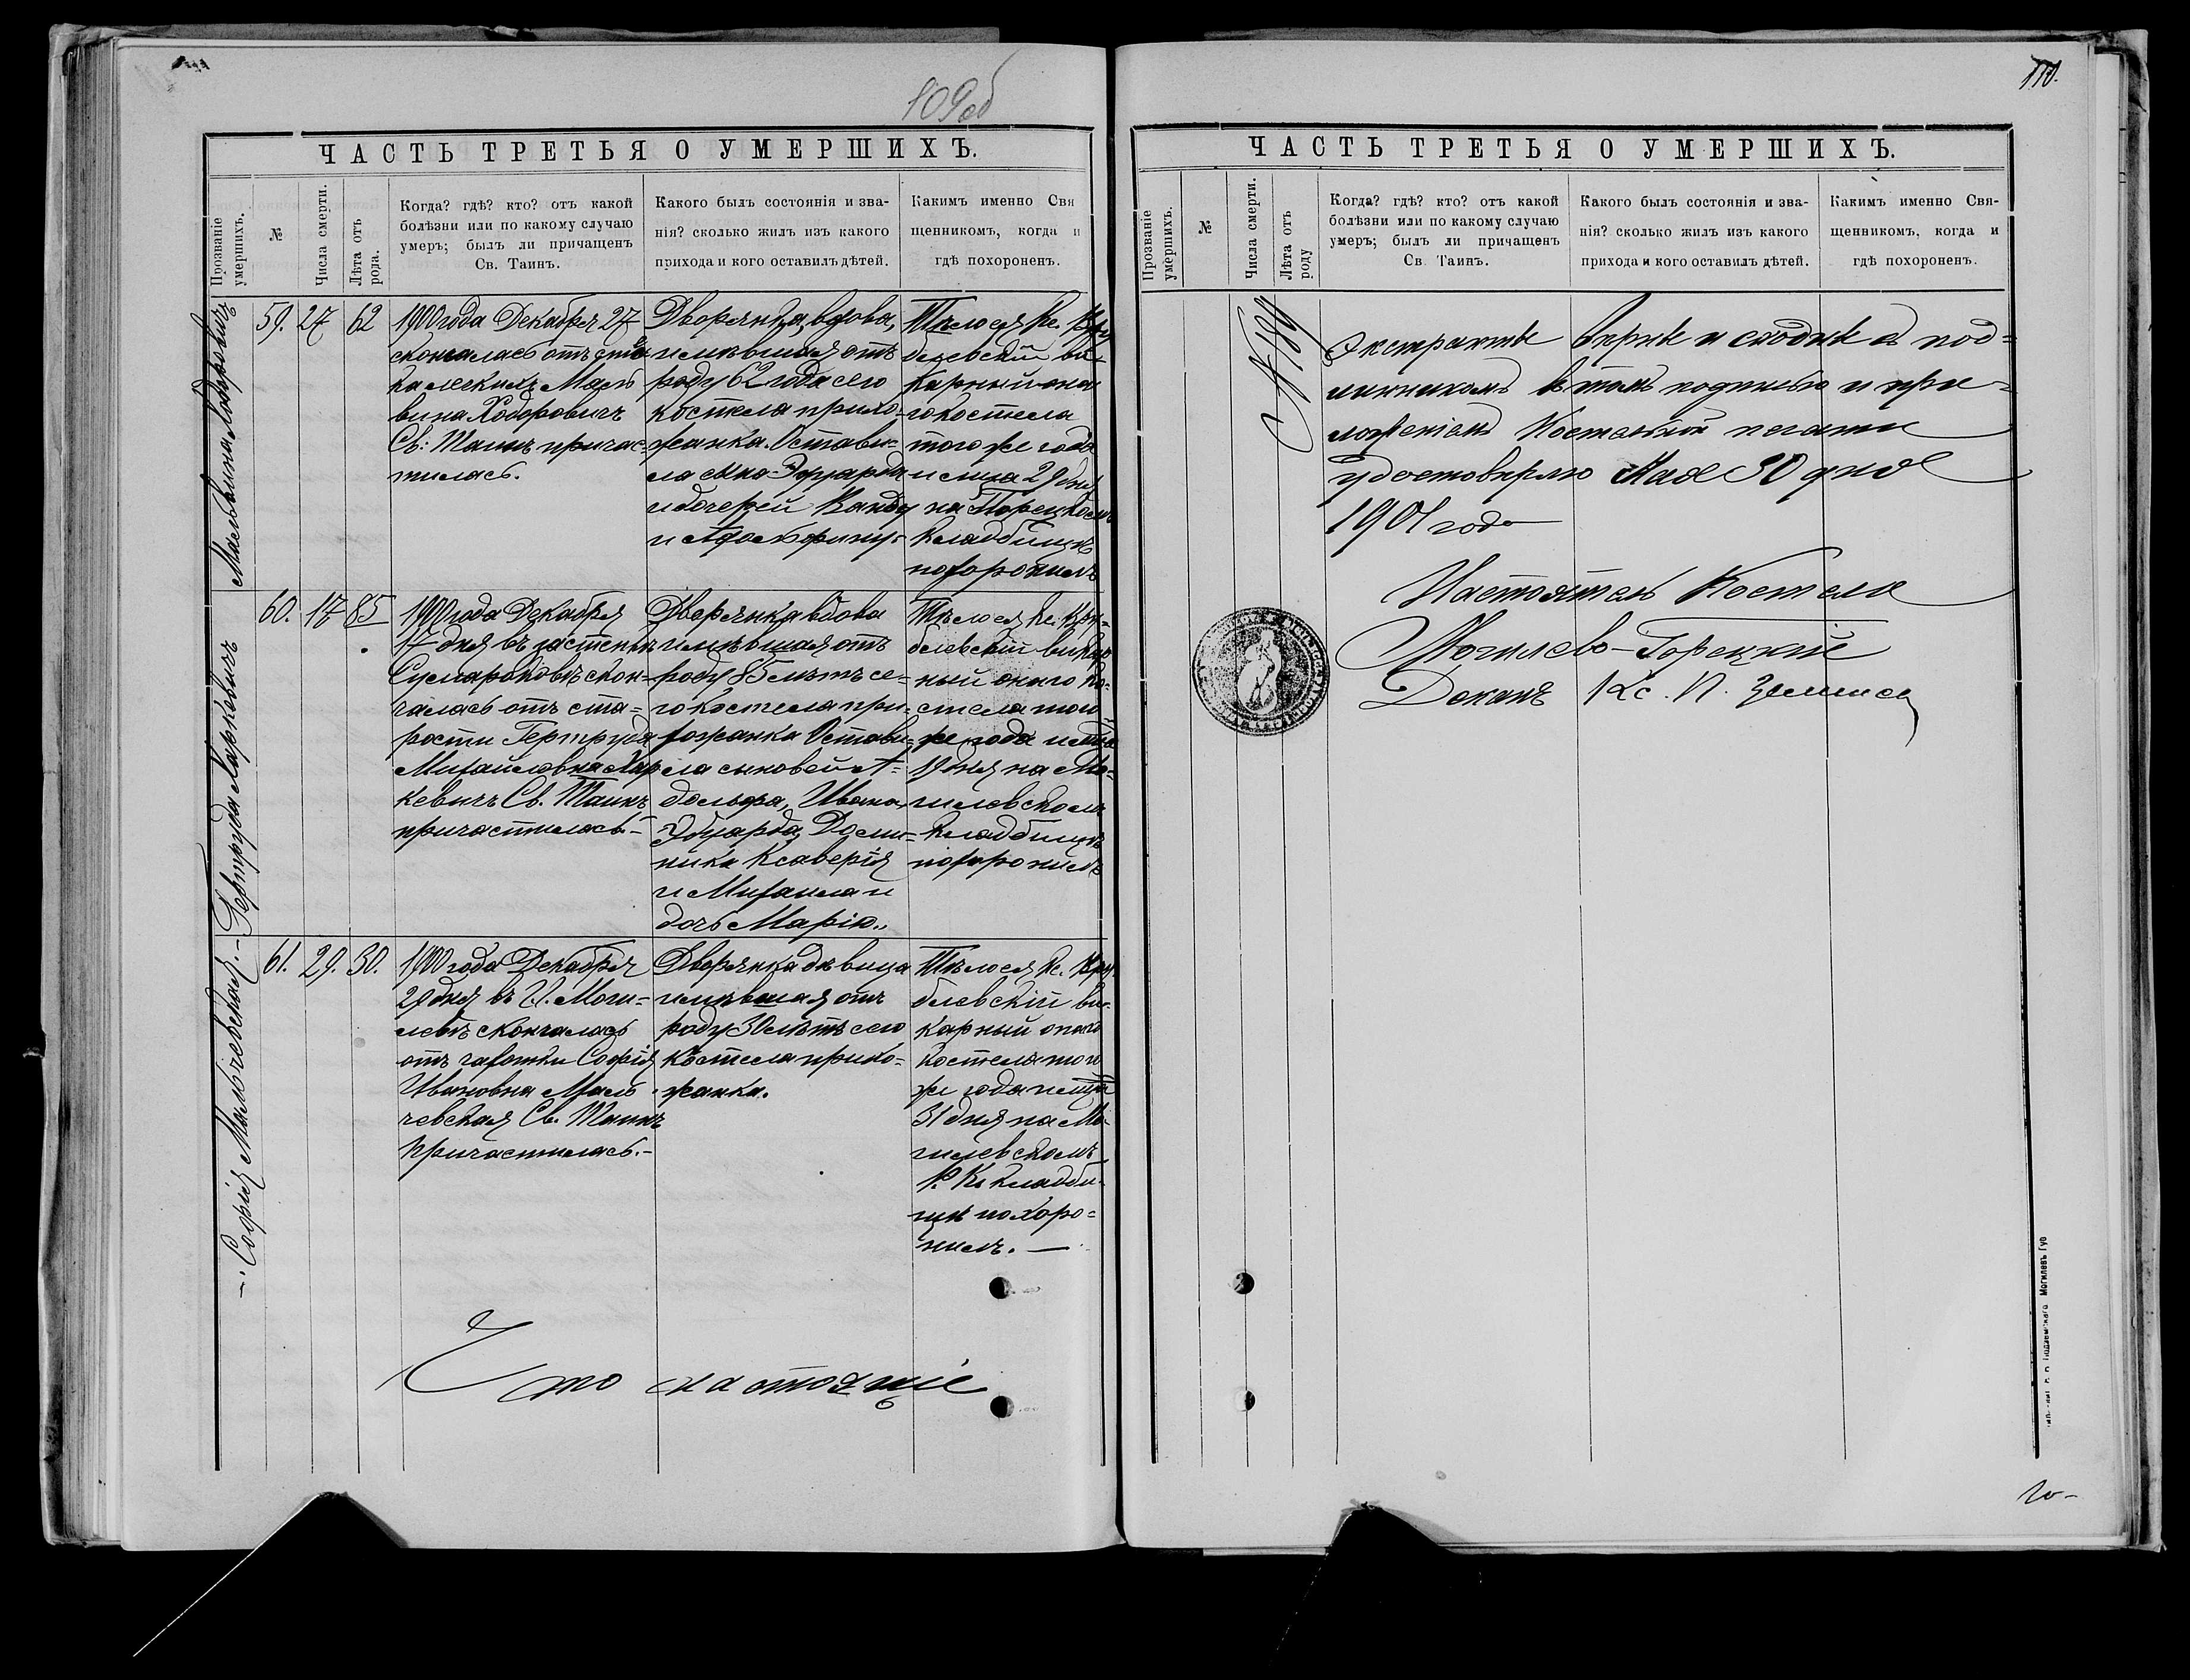 109об
ЧАСТЬ ТРЕТЬЯ О УМЕРШИХЪ.
Прозваніе умершихъ.
№
Числа смерти.
Лѣта отъ рода.
Когда? гдѣ? кто? отъ какой
болѣзни или по какому случаю
умеръ; былъ ли причащенъ
Св. Таинъ.
Какого былъ состоянія и зва-
нія? сколько жилъ изъ какого
прихода и кого оставилъ дѣтей.
Какимъ именно Свя
щенникомъ, когда и
гдѣ похороненъ.
Мальвина Ходоровичъ
59. 27 62
1900 года Декабря 27
скончалась отъ
Маль
вина Ходоровичъ
Св: Таинъ причас-
тилась.
Дворянка, вдова,
имѣвшая отъ
роду 62 года сего
костела прихо-
жанка. Остави-
ла сына Эдуарда
и дочерей Ванду
и Адольфину.
Тѣло ея Кс.
белевскій ви-
карный онаго
костела
того же года
и м-ца 29 дня
на Горецкомъ
кладбищѣ
похоронилъ
Гертруда Харкевичъ
60. 17 85
1900 года Декабря
17 дня въ застенкѣ
Сумароковѣ скон-
чалась отъ ста-
рости Гертруда
Михайловна Хар
кевичъ Св. Таинъ
причастилась.-
Дворянка вдова
имѣвшая отъ
роду 85 лѣтъ се-
го костела при-
хожанка Остави-
ла сыновей А-
дольфа, Ивана,
Эдуарда, Доми-
ника Ксаверія
и Михаила и
дочь Марію.
Тѣло ея Кс. Кру-
белевскій викар
ный онаго ко-
стела того
же года и м-ца
19 дня на Мо-
гилевскомъ
кладбищѣ
похоронилъ
Софія Мальчевская.-
61. 29. 30.
1900 года Декабря
29 дня въ Г. Моги-
левѣ скончалась
отъ чахотки Софія
Ивановна Маль
чевская Св. Таинъ
причастилась.-
Дворянка дѣвица
имѣвшая отъ
роду 30 лѣтъ сего
костела прихо-
жанка.
Тѣло ея Кс. Кру
белевскій ви-
карный онаго
костела того
же года и м-ца
31 дня на Мо-
гилевскомъ
Р. К. кладби-
щѣ похоро-
нилъ.—
Что настоящіе
110.
ЧАСТЬ ТРЕТЬЯ О УМЕРШИХЪ.
Прозваніе умершихъ.
№
Числа смерти.
Лѣта отъ роду
Когда? гдѣ? кто? отъ какой
болѣзни или по какому случаю
умеръ; былъ ли причащенъ
Св Таинъ.
Какого былъ состоянія и зва-
нія? сколько жилъ изъ какого
прихода и кого оставилъ дѣтей.
Какимъ именно Свя-
щенникомъ, когда и
гдѣ похороненъ.
№ 189
Экстракты вѣрны и сходны съ под-
линникомъ въ томъ подписью и при-
ложеніемъ Костельной печати
удостовѣряю Мая 30 дня
1901 года
Настоятель Костела
Могилево-Горецкій
Деканъ Кс. П.
Могилевъ Губ